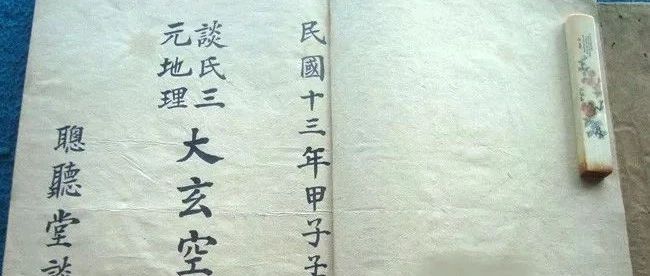 民國十三年甲子
談氏三
元地理
大玄空
聰聽堂談